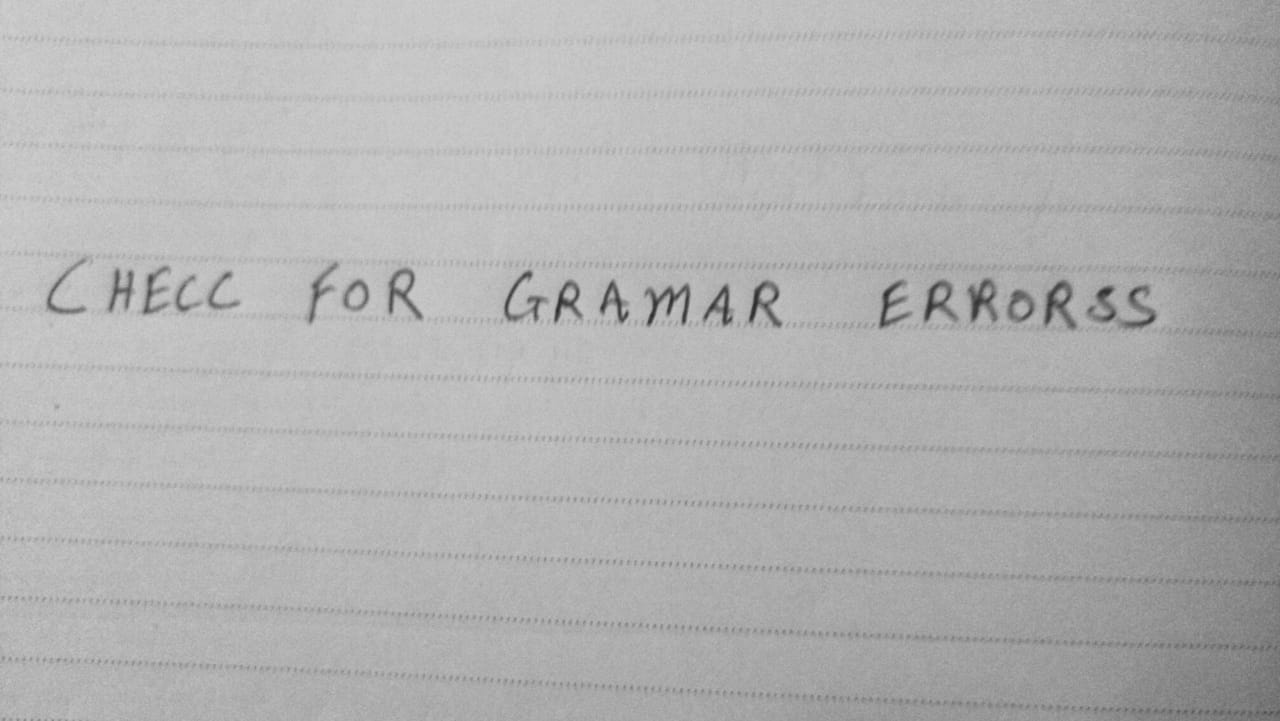 CHECC FOR GRAMAR ERRORSS